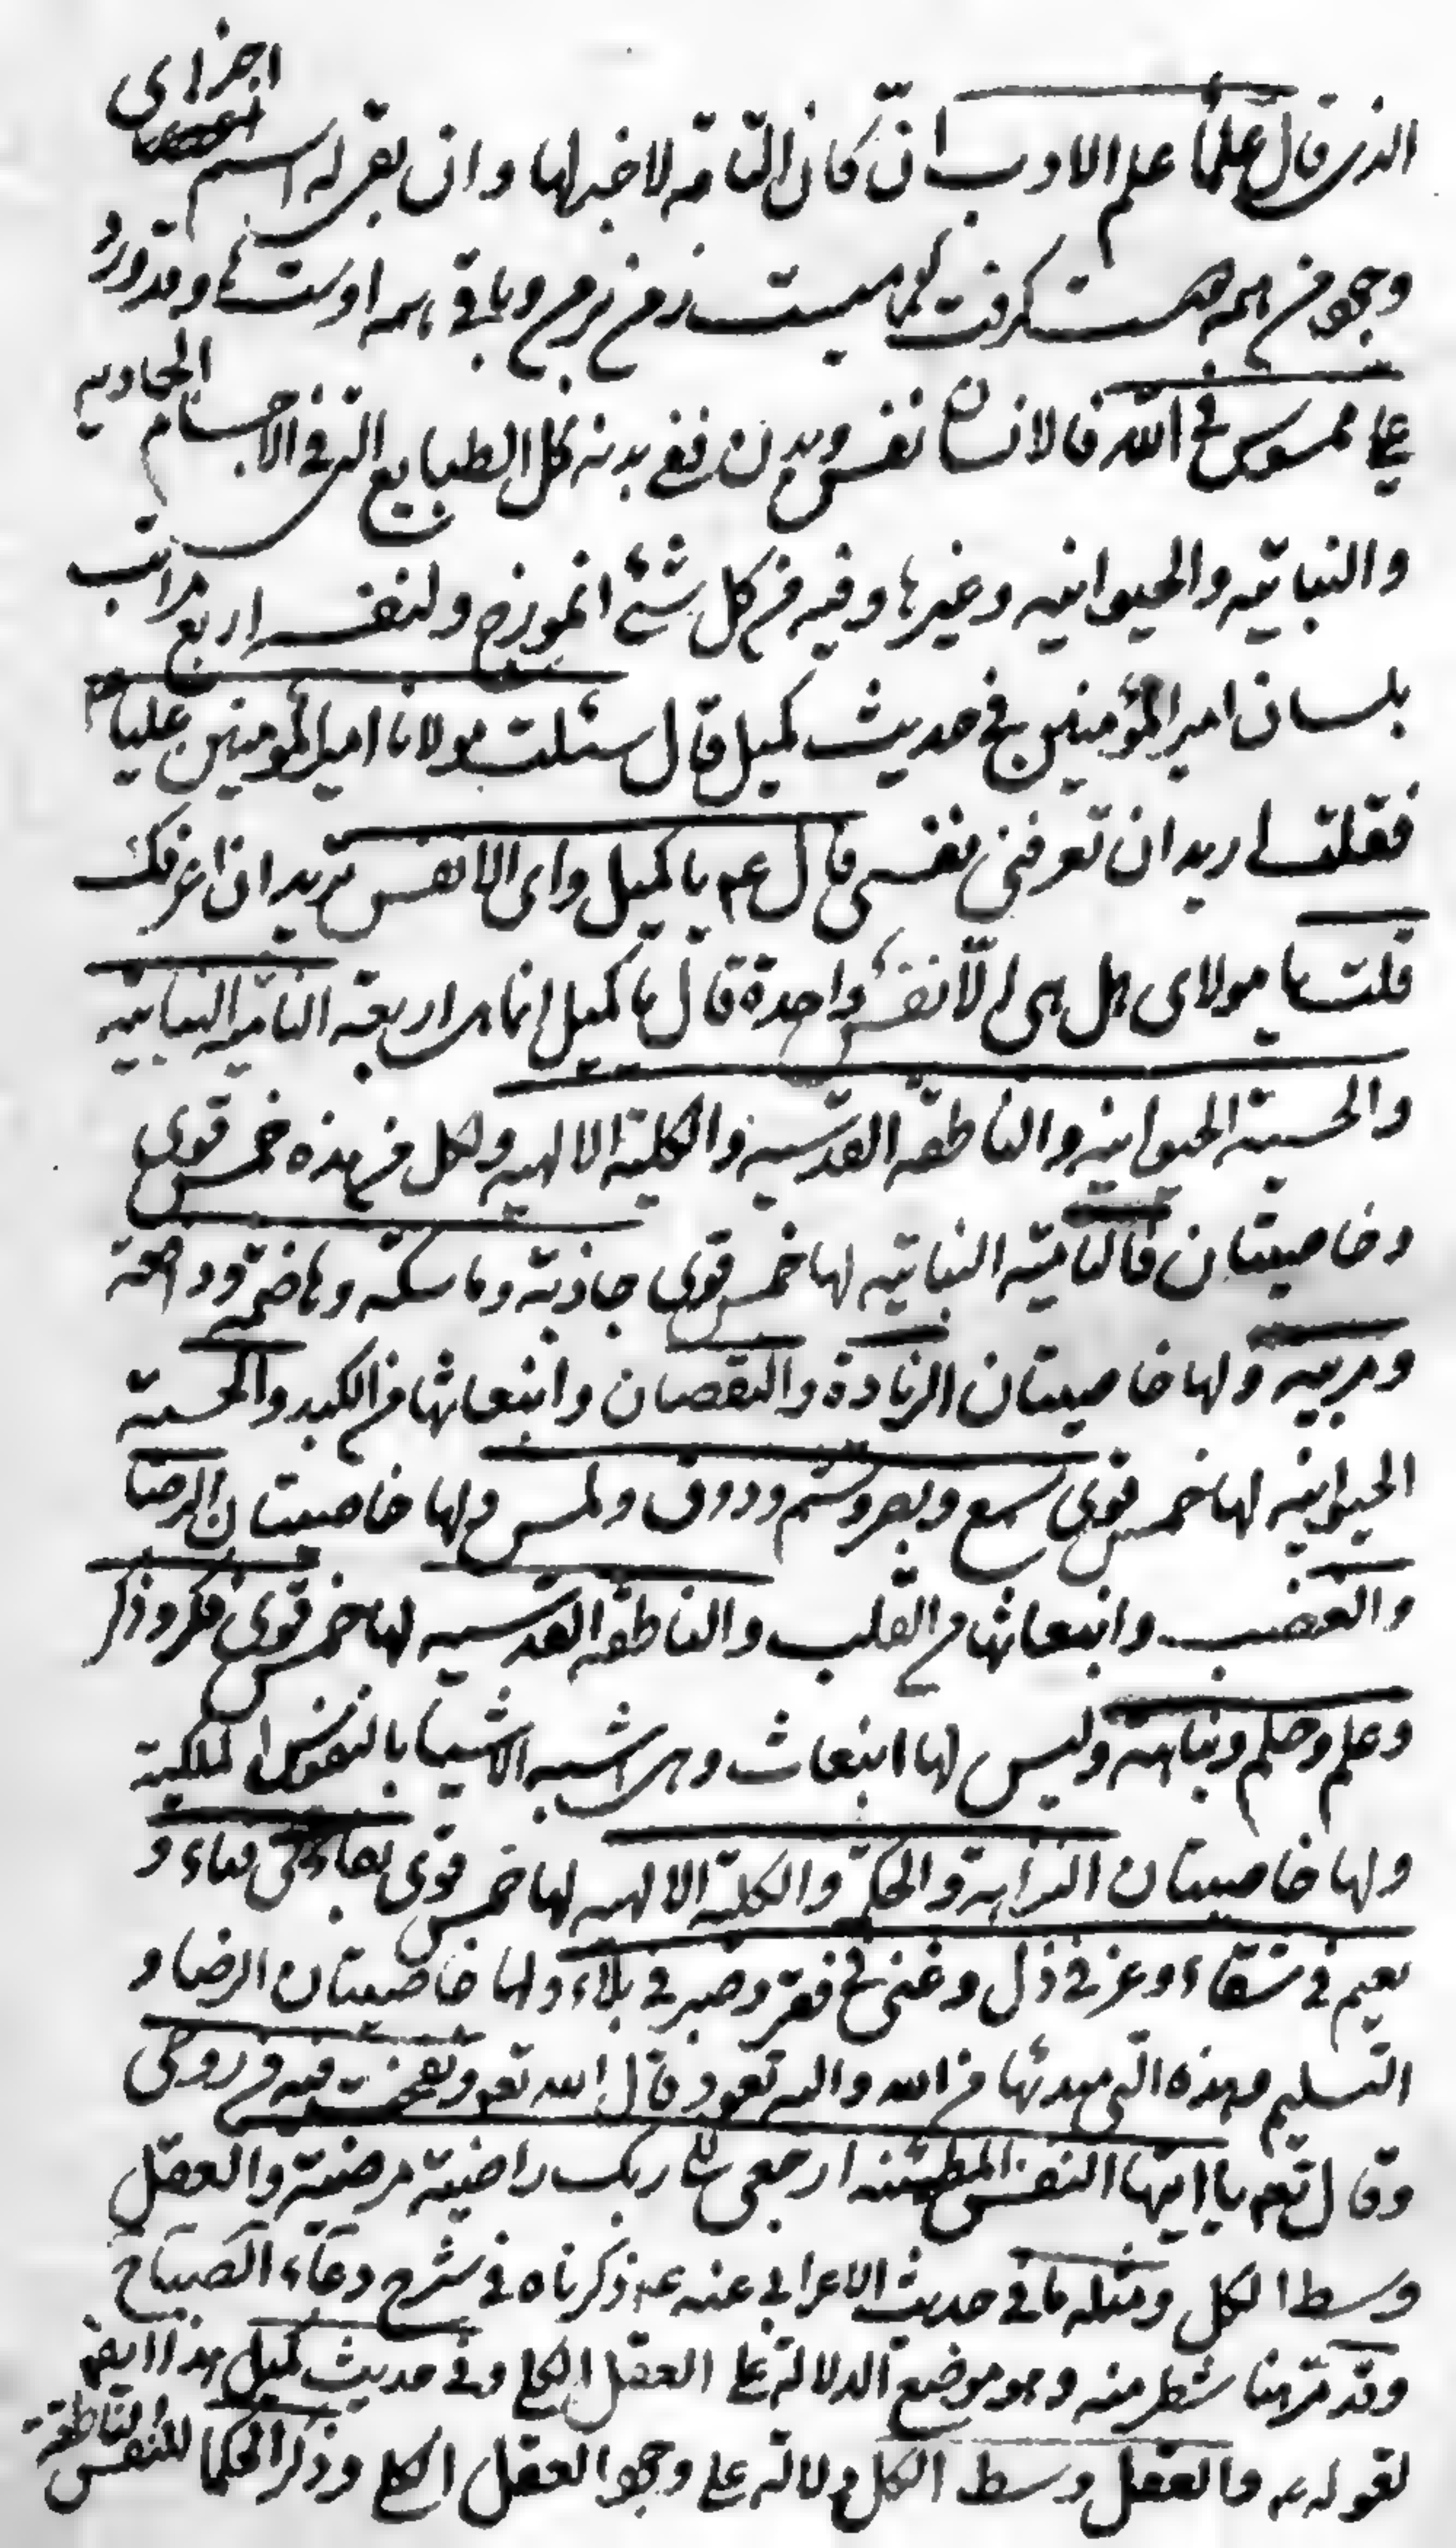 اجزای
الذی قال علماء علم الادب ان کان التامه لا خبر لها وان بقی له اسم
وجود من همه دوست گرفت نامیست ز من بر من و باقی همه اوست وقد ورد
علی ممسوس فی الله فالانسان نفس وبدن ففی بدنه کل الطبایع التی فی الاجسام الجمادیه
والنباتیه والحیوانیه وغیرها وفیه من کل شئ انموزج ولنفسه اربع مراتب
بلسان امیرالمؤمنین فی حدیث کمیل قال سئلت مولانا امیرالمؤمنین علیه‌السلام
فقلت ارید ان تعرفنی نفسی قال عم یا کمیل وای الانفس ترید ان اعرفک
قلت یا مولای هل هی الّا نفس واحدة قال یا کمیل انما هی اربعة النامیه النباتیه
والحسیة الحیوانیه والناطقه القدسیه والکلیة الالهیه ولکل من هذه خمس قوی
وخاصیتان فالنامیة النباتیه لها خمس قوی جاذبة وماسکه وهاضمة ودافعة
ومربیه ولها خاصیتان الزیادة والنقصان وانبعاثها من الکبد والحسیة
الحیوانیه لها خمس قوی سمع وبصر وشم وذوق ولمس ولها خاصیتان الرضا
والغضب وانبعاثها من القلب والناطقه القدسیه لها خمس قوی فکر وذکر
وعلم وحلم ونباهة ولیس لها انبعاث وهی اشبه الاشیا بالنفوس الملکیة
ولها خاصیتان النزاهة والحکمة والکلیة الالهیه لها خمس قوی بقاء فی فناء و
نعیم فی شقاء وعز فی ذل وغنی فی فقر وصبر فی بلاء ولها خاصیتان الرضا و
التسلیم وهذه التی مبدئها من الله والیه تعود قال الله تعم ونفخت فیه من روحی
وقال تعم یا ایتها النفس المطمئنه ارجعی الی ربک راضیة مرضیة والعقل
وسط الکل ومثله ما فی حدیث الاعرابی عنه عم ذکرناه فی شرح دعاء الصباح
وقد مر هنا شطر منه وهو موضع الدلالة علی العقل الکلی وفی حدیث کمیل هذا ایضا
لقوله والعقل وسط الکل دلالة علی وجود العقل الکلی وذکر الحکما للنفس الناطقة